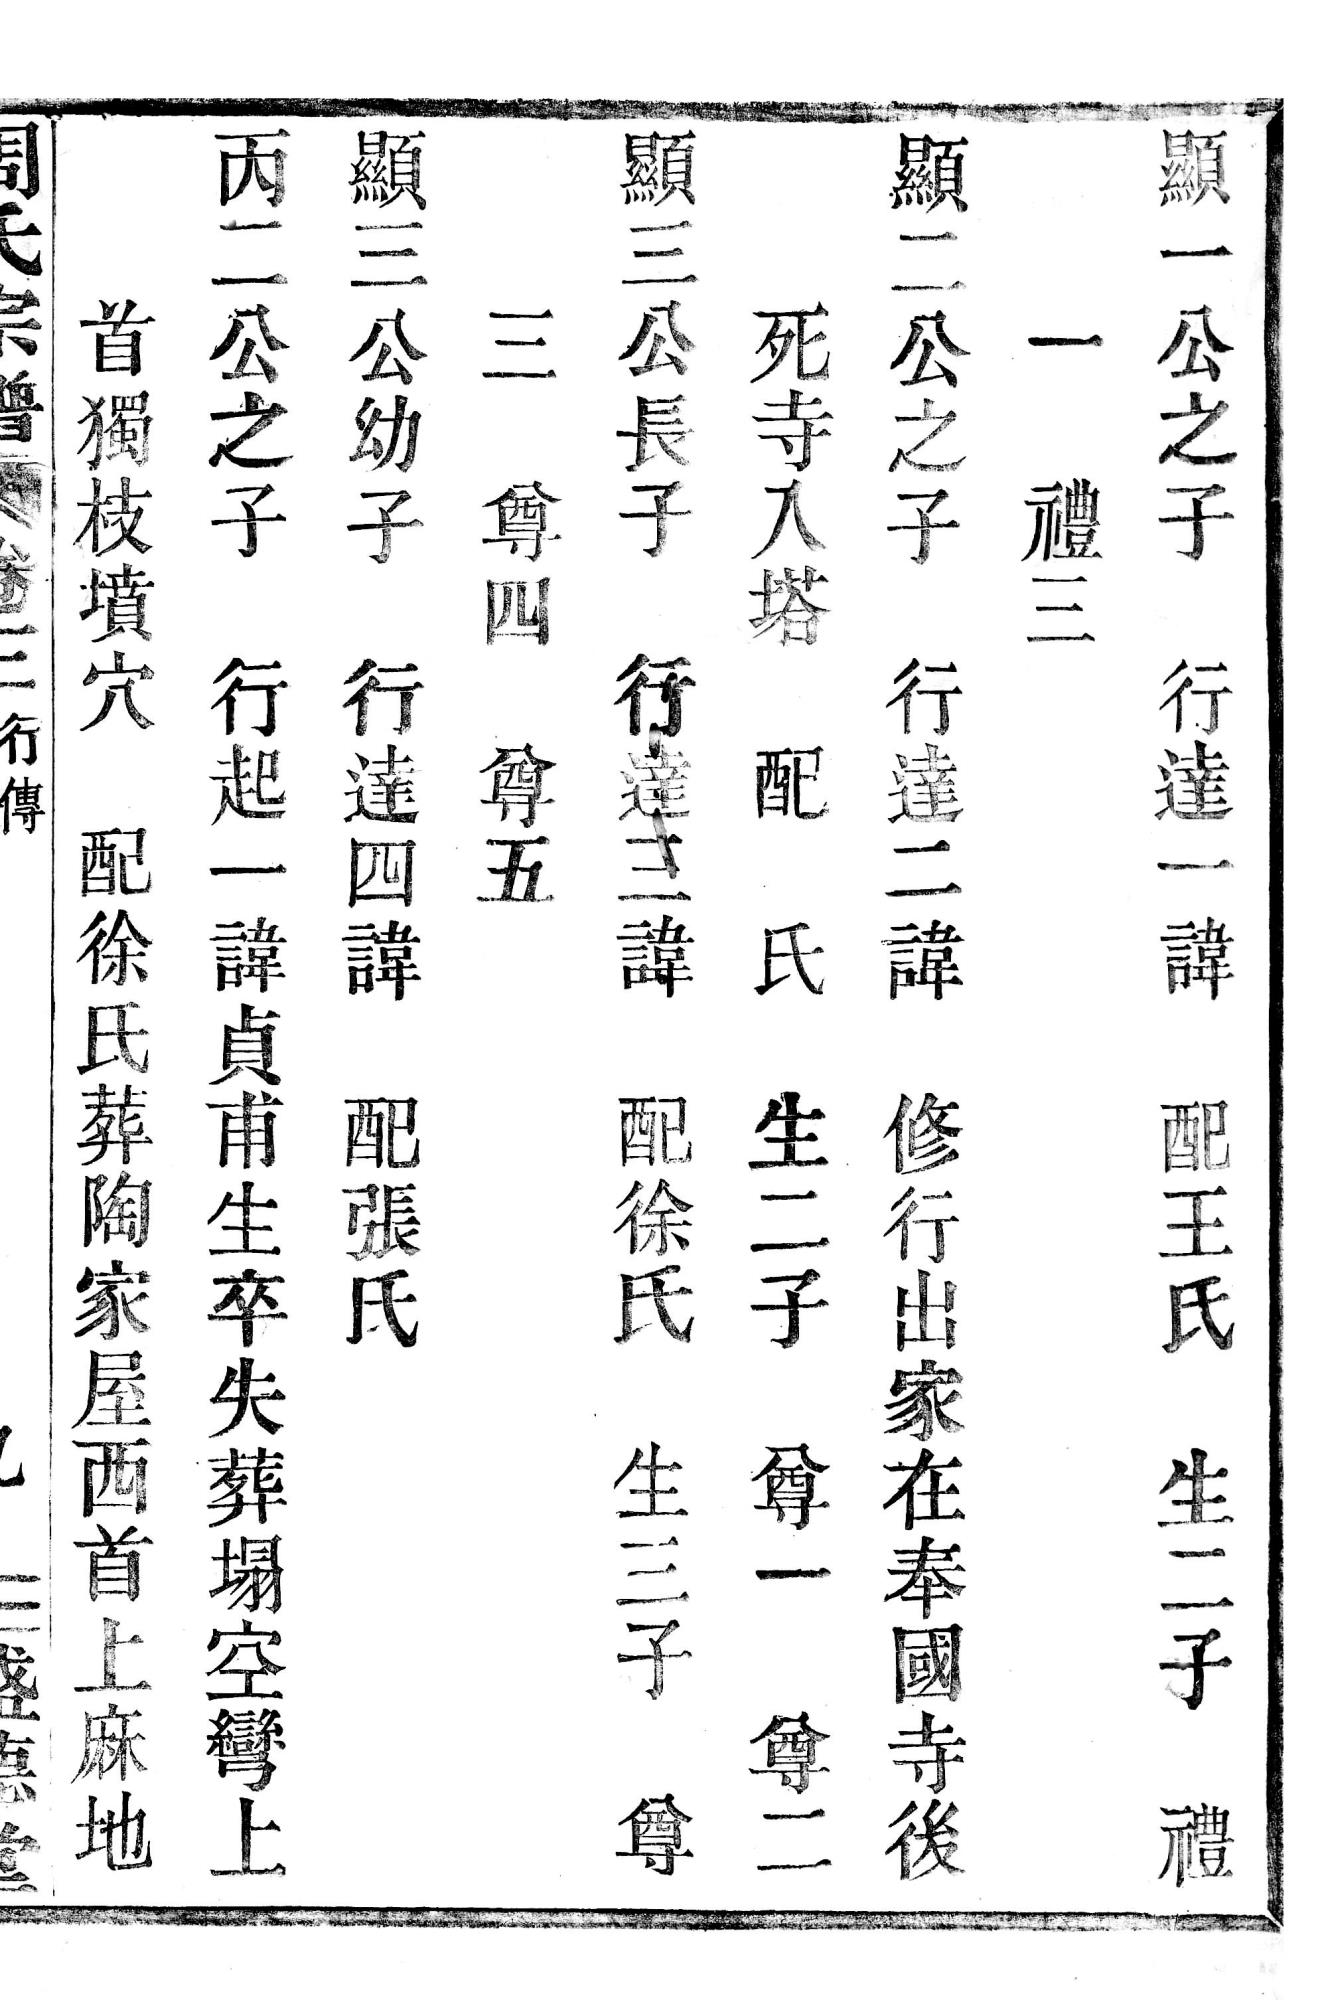 顯一公之子　行達一諱　配王氏　生二子　禮
一　禮三
顯二公之子　行達二諱　修行出家在奉國寺後
死寺入塔　配　氏　生二子　尊一　尊二
顯三公長子　行達三諱　配徐氏　生三子　尊
三　尊四　尊五
顯三公幼子　行達四諱　配張氏
丙二公之子　行起一諱貞甫生卒失葬塌空彎上
首獨枝墳穴　配徐氏葬陶家屋西首上麻地
周氏宗譜　卷二　行傳　九　三盛德堂